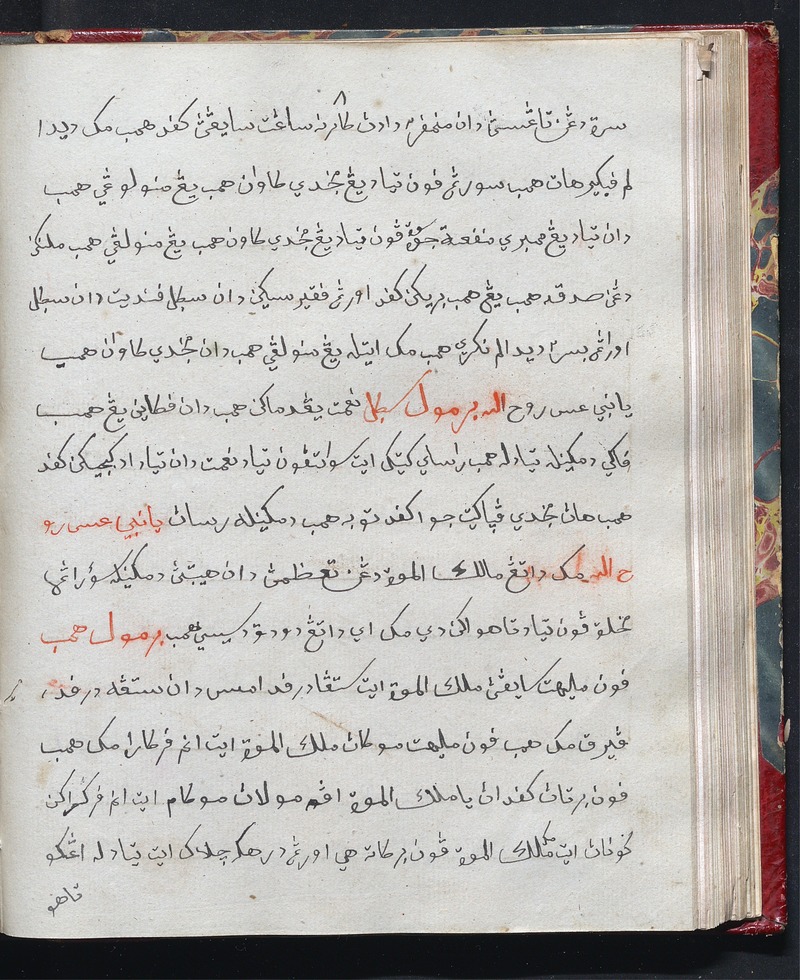 سرة دڠن تاڠيسڽ دان منمڤر٢ دادڽ طاڤدڽ ساعت سايڠڽ کفد همب مک ديدا
لم فيکير هات همب سورڠ ڤون تياد يڠ جندي طاون همب يڠ منولوڠي همب
دان تياد يڠ ممبري منفعة حق٢ ڤون تياد يڠ جندي طاون همب يڠ منولڠي همب ملنکن
دڠن صدقه همب يڠ همب بريکن کفد اورڠ فقير مسکين دان سکل فنديت دان سکل
اورڠ بسر٢ ديدالم نکري همب مک ايتله يڠ منولڠي همب دان جندي طاون همب
يا نبي عيسى روح الله برمول سکل نعمت يڠ دماکن همب دان فطاين يڠ همب
فاکي دمکينله تياد له همب راساي کتيک ايت سواتڤون تياد نعمت دان تياد اد کبجيکن کفد
همب هاڽ جندي ڤڽاکيت جوا کفد توبه همب دمکينله رساڽ يا نبي عيسى رو
ح الله مک داتڠ مالك الموة دڠن تعظيمڽ دان هيبتڽ دمکينله سؤرڠ
مخلوق ڤون تياد تاهو اکن دي مک اي داتڠ دودق دسيسي همب برمول همب
فون مليهت سايڤڽ ملك الموة ايت ستڠه درفد امس دان ستڠه درفد
ڤيرق مک همب فون مليهت موکاڽ ملك الموة ايت انم فرکارا مک همب
فون برتاڽ کفداڽ يا ملك الموة اڤ مولاڽ موکام ايت انم فرکراکن
کوناڽ ايت مک ملك الموة ڤون برکاته هي اورڠ درهک چلاک ايت تياد له اڠکو
تاهو